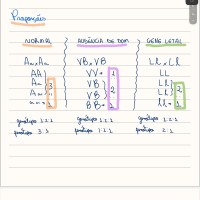 Proporções
NORMAL AUSÊNCIA DE DOM GENE LETAL
Aa x Aa VB x VB Ll x Ll
AA VV → 1 LL
Aa 3 VB Ll
Aa VB 2 Ll 2
aa → 1 BB → 1 ll → 1
genótipo 1:2:1 genótipo 1:2:1 genótipo 1:2:1
fenótipo 3:1 fenótipo 1:2:1 fenótipo 2:1